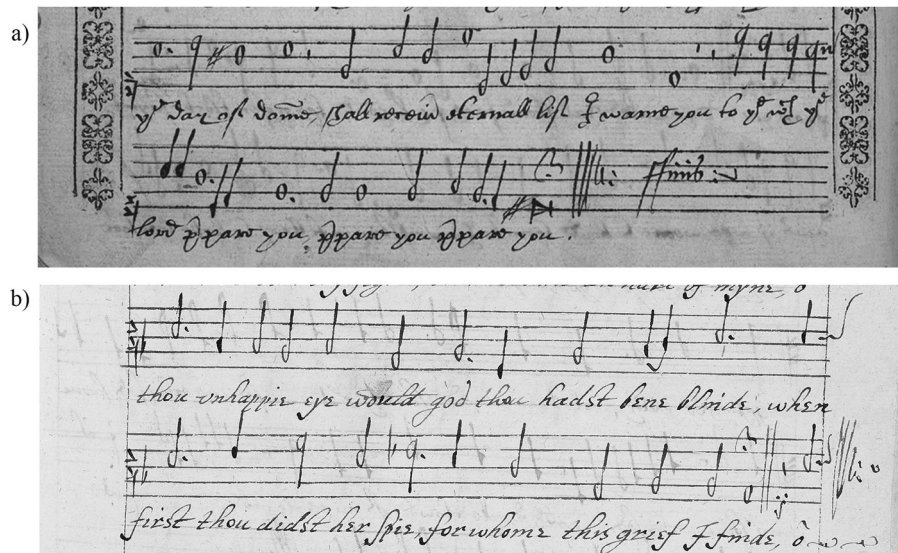 a)
yͤ day of dome, shall receiv eternall lif I warne you to yͤ yͤ
ffinis
lord p̱pare you p̱pare you p̱pare you.
b)
of myne, o
thou vnhappie eye would god thou hadst bene blinde, when
first thou didst her spie, for whome this grief I finde, ô